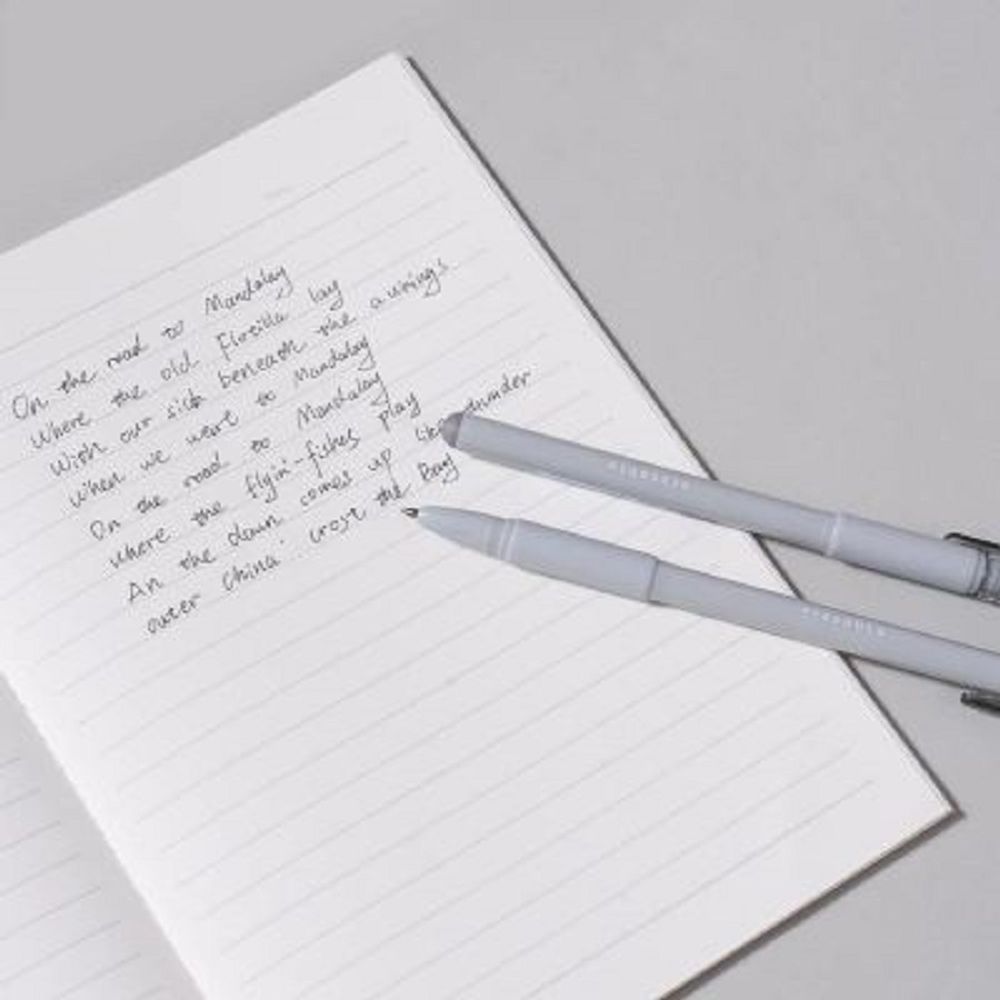 On the road to Mandalay
Where the old Flotilla lay
With our sick beneath the awnings
when we went to Mandalay
On the road to Mandalay
where the flyin'-fishes play
An the dawn comes up like
outer China ' crost the Bay